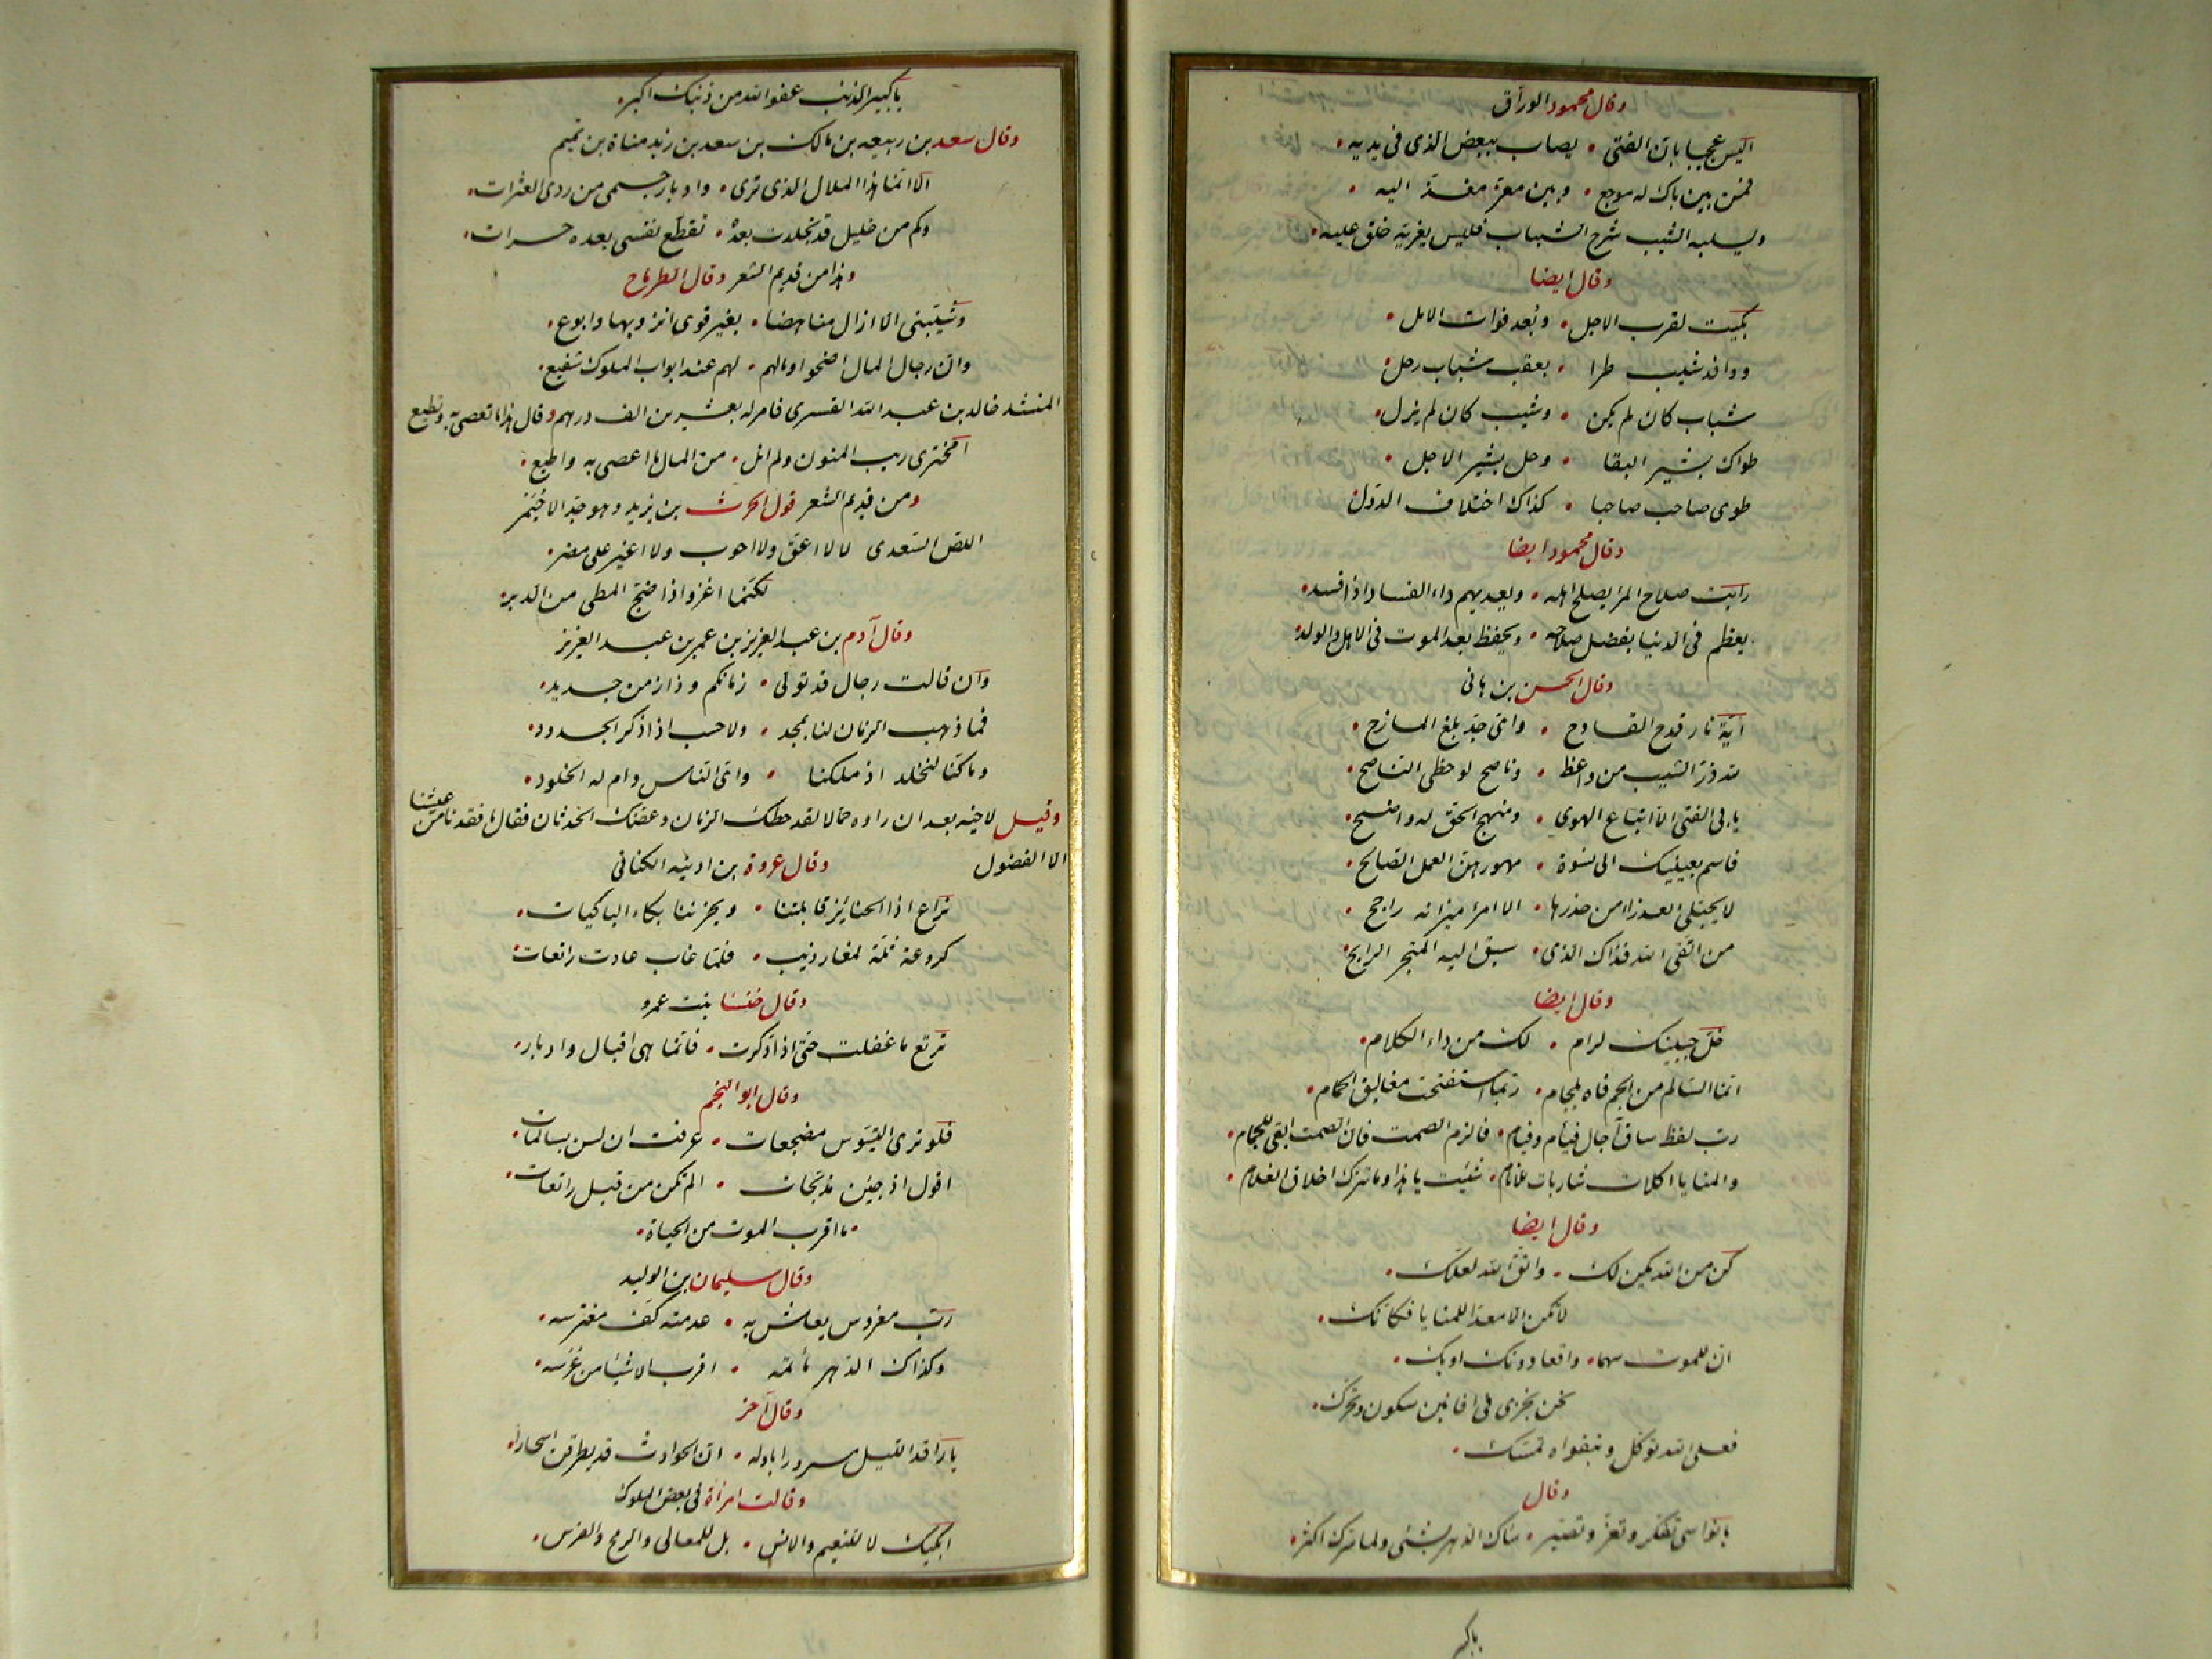 وقال محمود الوراق
اليس عجيبا بان الفتى • يصاب ببعض الذى فى يديه •
فمن بين باك له موجع • وبين معز مغذ اليه •
ويسلبه الشيب شرخ الشباب فليس يعزيه خلق عليه •
وقال ايضا
بكيت لقرب الاجل • وبعد فوات الامل •
ووافد شيب طرا • بعقب شباب رحل •
شباب كان لم يكن • وشيب كان لم يزل •
طواك بشير البقا • وحل بشير الاجل •
طوى صاحب صاحبا • كذاك اختلاف الدول •
وقال محمود ايضا
رايت صلاح المرء يصلح اهله • ويعديهم داء الفساد اذا فسد •
يعظم فى الدنيا بفضل صلاحه • ويحفظ بعد الموت فى الاهل والولد •
وقال الحسن بن هانى
اية نار قدح القادح • واى جد بلغ المازح •
لله در الشيب من واعظ • وناصح لو حظى الناصح •
يابى الفتى الا اتباع الهوى • ومنهج الحق له واضح •
فاسم بعينيك الى نسوة • مهورهن العمل الصالح •
لا يجتلى العذراء من خدرها • الا امرء ميزانه راجح •
من اتقى الله فذاك الذى • سيق اليه المتجر الرابح •
وقال ايضا
خل جنبيك لرام • لك من داء الكلام •
انما السالم من الجم فاه بلجام • ربما استفتحت مغاليق الحمام •
رب لفظ ساق آجال فيام وفيام • فالزم الصمت فان الصمت ابقى للجمام •
والمنايا اكلات شاربات للانام • شبت يا هذا وما تترك اخلاق الغلام •
وقال ايضا
كن من الله يكن لك • واتق الله لعلك •
لا تكن الا معدا للمنايا فكانك •
ان للموت سهما • واقعا دونك او بك •
نحن نجرى فى افانين سكون وتحرك •
فعلى الله توكل وبتقواه تمسك •
وقال
يا نواسى تفكر وتعز وتصبر • ساءك الدهر بشئ ولما سرك اكثر •
يا كبير
يا كبير الذنب عفو الله من ذنبك اكبر •
وقال سعد بن ربيعه بن مالك بن سعد بن زيد مناة بن تميم
الا انما هذا الملال الذى ترى • وادبار جسمى من ردى العثرات •
وكم من خليل قد تجلدت بعده • تقطع نفسى بعده حسرات •
وهذا من قديم الشعر وقال الطرماح
وشيبنى الا ازال مناهضا • بغير قوى انزو بها وابوع •
وان رجال المال اضحوا ومالهم • لهم عند ابواب الملوك شفيع •
المنشد خالد بن عبد الله القسرى فامر له بعشرين الف درهم وقال هذا ما تعصى به وتطيع
امخترمى ريب المنون ولم انل • من المال ما اعصى به واطيع •
ومن قديم الشعر قول الحرث بن يزيد وهو جد الاخيمر
اللص السعدى لا لا اعق ولا احوب ولا اغير على مضر •
لكنما اغزو اذا ضج المطى من الدبر •
وقال آدم بن عبد العزيز بن عمر بن عبد العزيز
وان قالت رجال قد تولى • زمانكم وذا زمن جديد •
فما ذهب الزمان لنا بمجد • ولا حسب اذا ذكر الجدود •
وما كنا لنخلد اذ ملكنا • واى الناس دام له الخلود •
وقيل لاخيه بعد ان راوه حمالا لقد حطك الزمان وعضك الحدثان فقال ما فقدنا من عيشنا
الا الفضول وقال عروة بن اذينه الكنانى
نراع اذا الجنائز قابلتنا • ويحزننا بكاء الباكيات •
كروعة ثلة لمغار ذيب • فلما غاب عادت راتعات •
وقال خنسا بنت عمرو
ترتع ما غفلت حتى اذا ذكرت • فانما هى اقبال وادبار •
وقال ابو النجم
فلو ترى التيوس مضجعات • عرفت ان لسن بسالمات •
اقول اذ جئن مذبحات • الم تكن من قبل راتعات •
• ما اقرب الموت من الحياة •
وقال سليمان بن الوليد
رب مغروس يعاش به • عدمته كف مغترسه •
وكذاك الدهر مأتمه • اقرب الاشيا من عرسه •
وقال آخر
يا راقد الليل مسرورا باوله • ان الحوادث قد يطرقن اسحارا •
وقالت امرأة فى بعض الملوك
ابكيك لا للنعيم والانس • بل للمعالى والرمح والفرس •